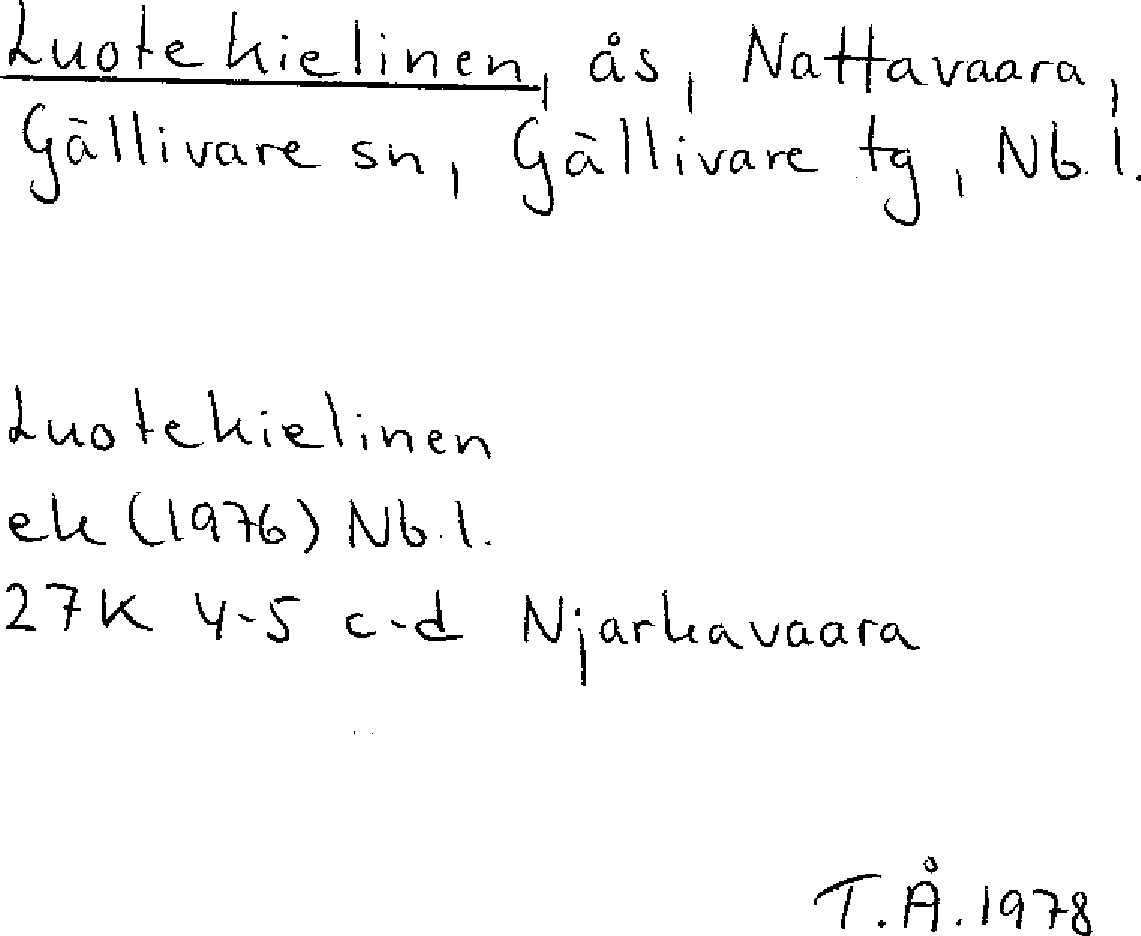 Luotekielinen, ås, Nattavaara,
Gällivare sn, Gällivare tg, Nb. l.
Luotekielinen
ek (1976) Nb. l.
27K 4-5 c-d Njarkavaara
T.Å. 1978